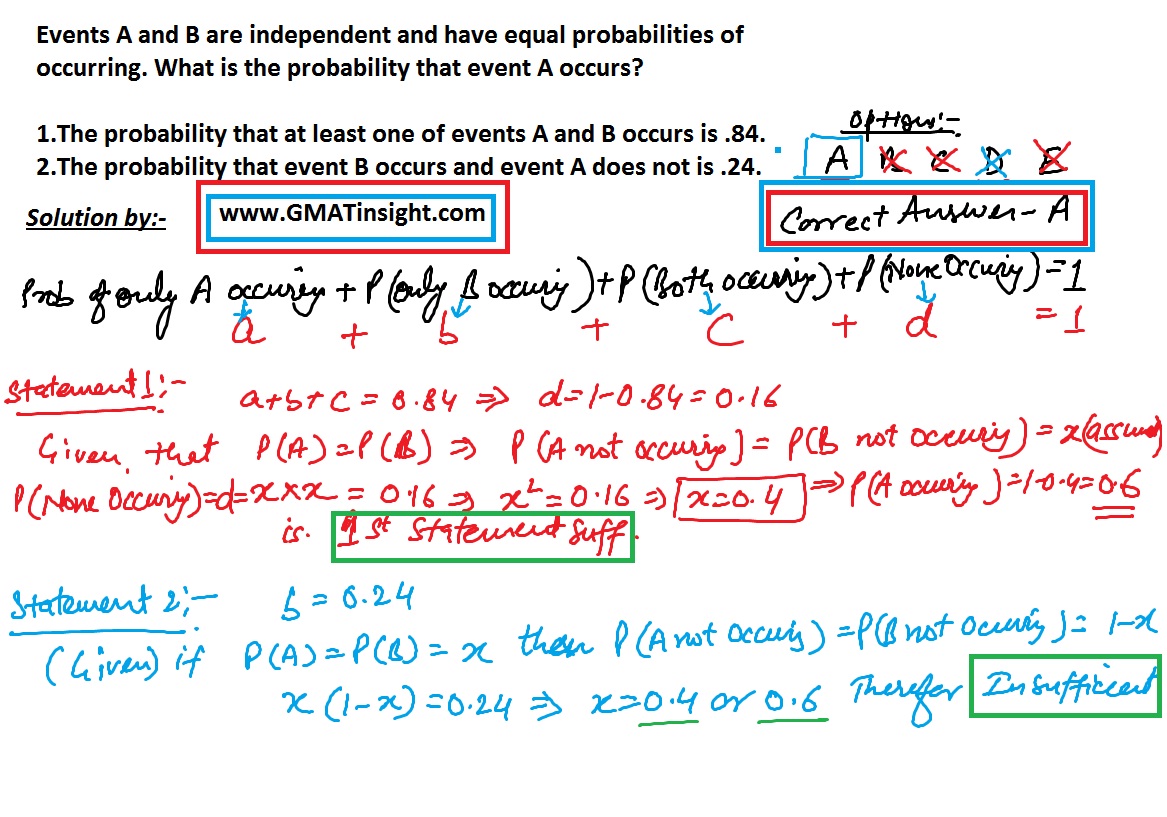 Events A and B are independent and have equal probabilities of
occurring. What is the probability that event A occurs?
1.The probability that at least one of events A and B occurs is .84.
2.The probability that event B occurs and event A does not is .24.
Options:-
A B C D E
Solution by:- www.GMATinsight.com
Correct Answer - A
Prob of only A occuring + P(only B occuring) + P(Both occurring) + P(None Occuring) = 1
a + b + c + d = 1
Statement 1:- a+b+c = 0.84 ⇒ d=1-0.84=0.16
Given that P(A)=P(B) ⇒ P(A not occuring) = P(B not occuring) = x(assume)
P(None Occuring)=d=x×x = 0.16 ⇒ x²=0.16 ⇒ x=0.4 ⇒ P(A occuring)=1-0.4=0.6
is. 1st Statement Suff.
Statement 2:- b = 0.24
(Given) if P(A)=P(B)=x then P(A not occuring) = P(B not occuring) = 1-x
x(1-x)=0.24 ⇒ x=0.4 or 0.6 Therefor Insufficient